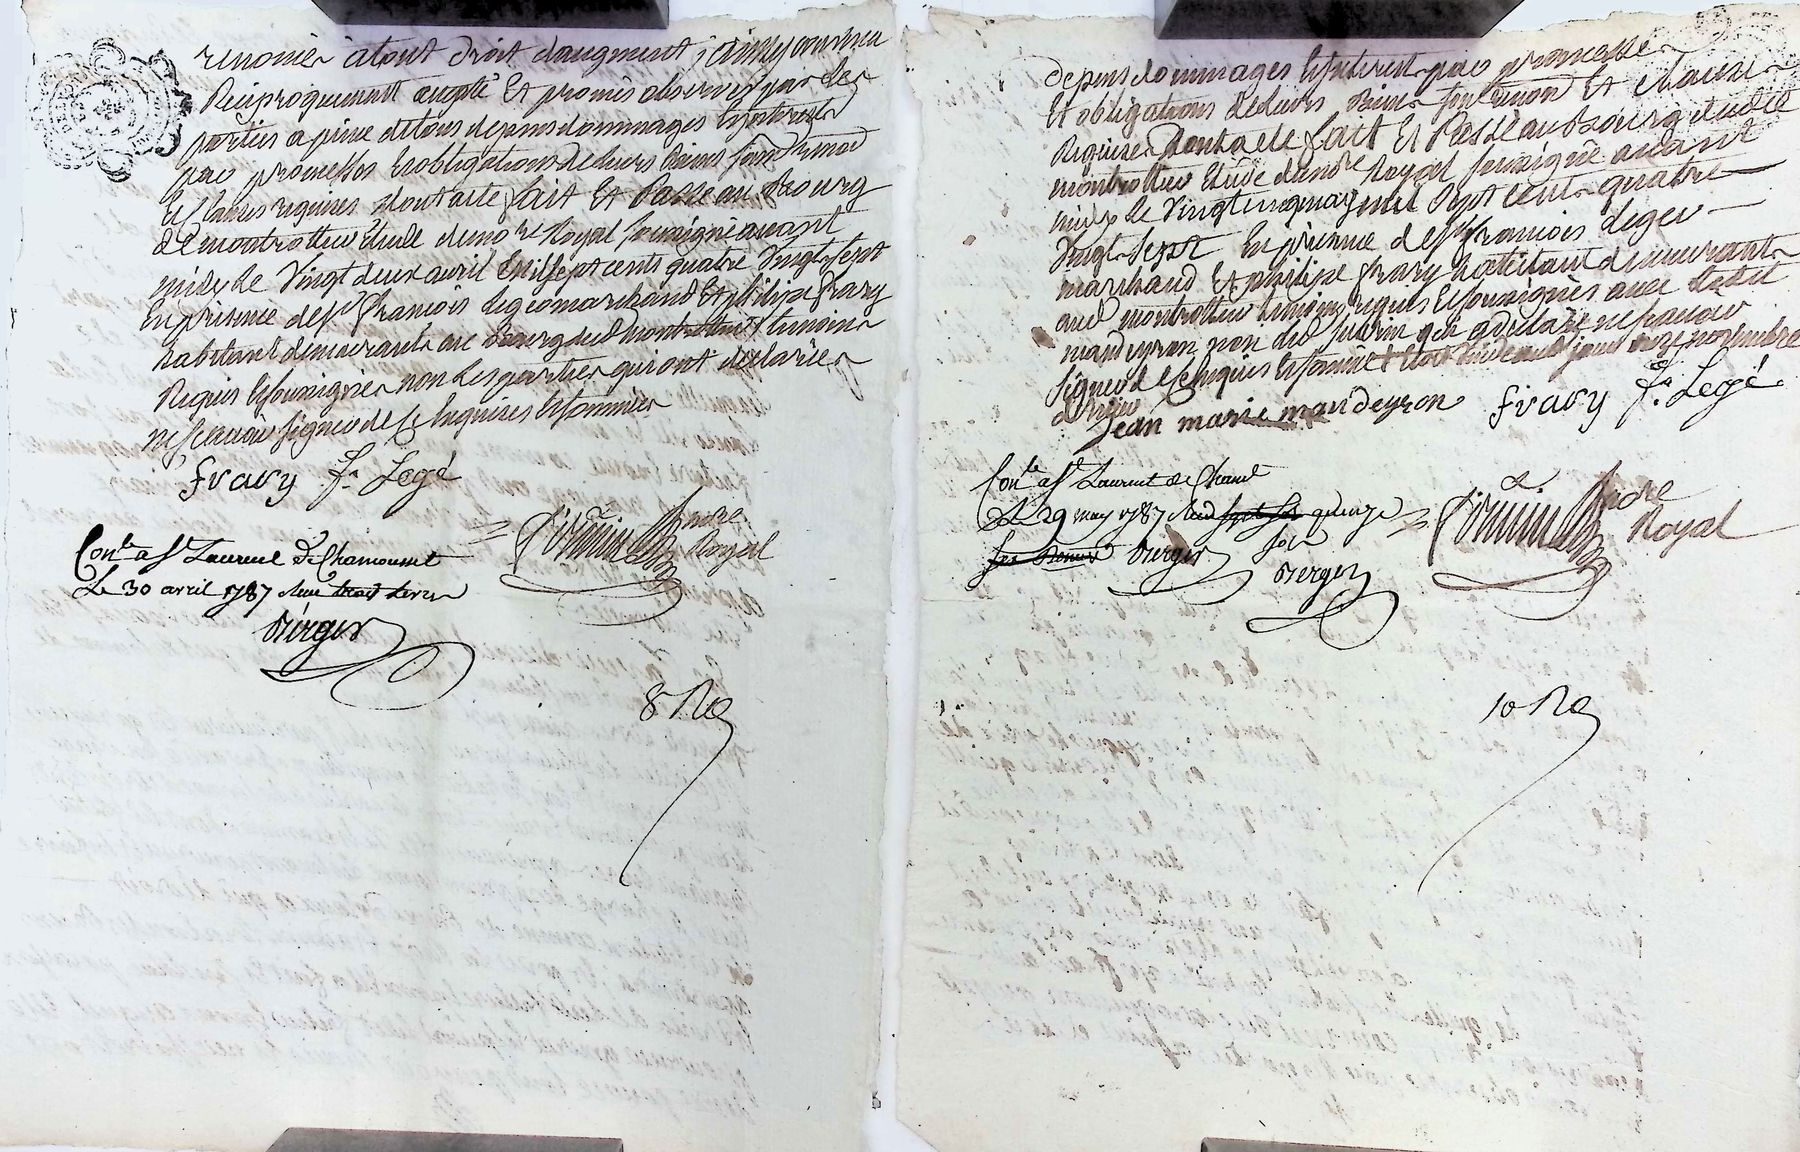 renoncer atout droit daugment, ainsy convenu
Reciproquement accepté Et promis observer par les
parties a peine detous depens dommages Insterests
par promesses Et obligations de leurs Biens sans renon
Et clauses requises dont acte fait Et Passé au Bourg
de montrottier Etude du no.re Royal soussigné avant
midy le Vingt deux avril mil sept cents quatre Vingt Sept
En presence de s.r François Legé marchand Et philipe fravy
habitants demeurants au Bourg dud montrottier temoins
Requis Et soussignés non les parties qui ont declarées
ne scavoir signer de ce Enquises Et sommées
fravy f.s Legé
Con.lé a S.t Laurent De Chamousset
Le 30 avril 1787 Reçu trois livres
Berger
no.re Royal
8 Re
depens dommages Insterests par promesse
Et obligations de leurs Biens sans renon Et clauses
Requises dont acte fait Et Passé au Bourg dudit
montrottier Etude du no.re Royal soussigné avant
midy le Vingt cinq may mil Sept cents quatre
Vingt Sept En presence de s.r François Legé
marchand Et philipe fravy habitants demeurants
aud montrottier temoins requis Et soussignés avec ledit
mandeyron non led qui a declaré ne scavoir
signer de ce Enquis Et sommé jour onze novembre
dernier
Jean marie mandeyron fravy f.s Legé
Con.lé a S.t Laurent de Cham.t
Le 29 may 1787 Reçu quinze
sols
Berger
Berger
no.re Royal
10 Re